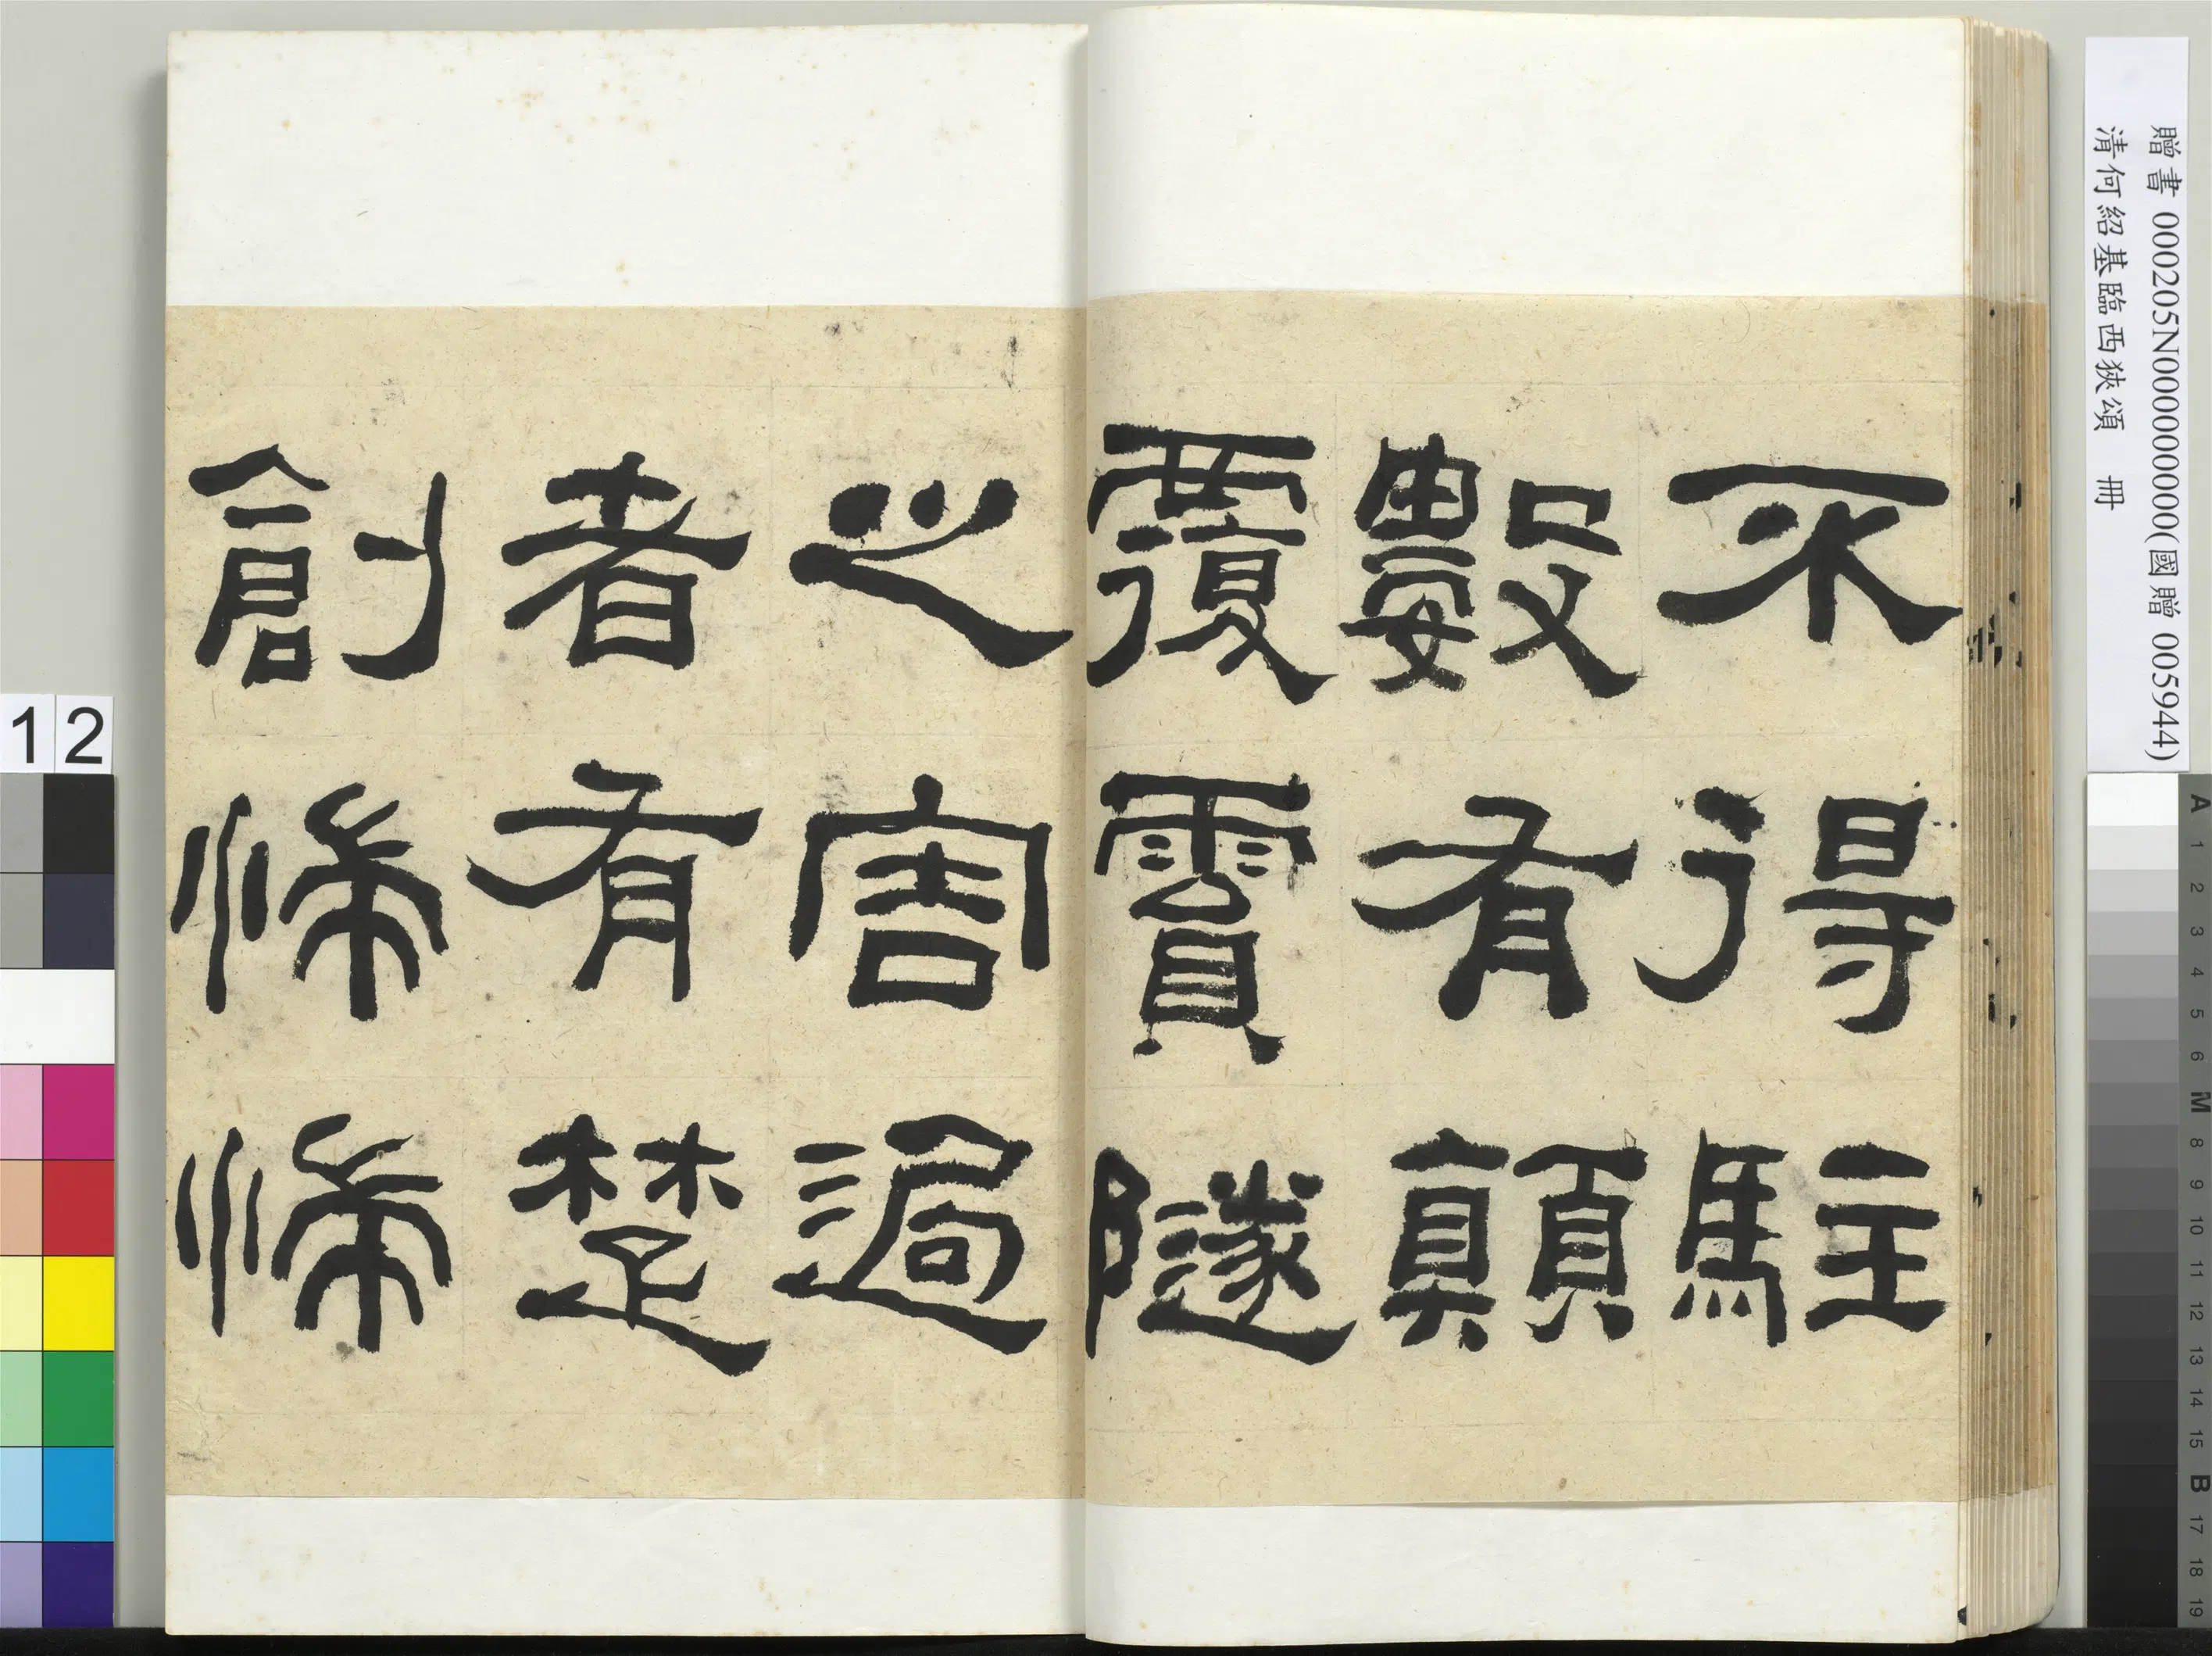 不得駐
數有顛
覆霣隧
之害過
者有楚
創惴惴
贈書 000205N000000000(國贈 005944)
清何紹基臨西狹頌 冊
12
A 1 2 3 4 5 6 M 8 9 10 11 12 13 14 15 B 17 18 19